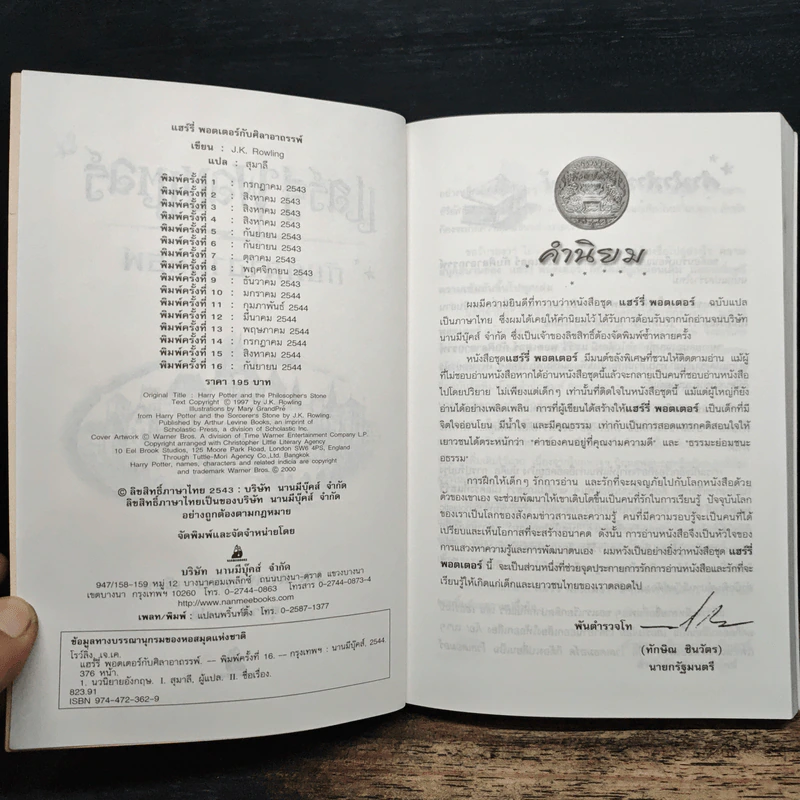 แฮร์รี่ พอตเตอร์กับศิลาอาถรรพ์
เขียน : J.K. Rowling
แปล : สุมาลี
พิมพ์ครั้งที่ 1 : กรกฎาคม 2543
พิมพ์ครั้งที่ 2 : สิงหาคม 2543
พิมพ์ครั้งที่ 3 : สิงหาคม 2543
พิมพ์ครั้งที่ 4 : สิงหาคม 2543
พิมพ์ครั้งที่ 5 : กันยายน 2543
พิมพ์ครั้งที่ 6 : กันยายน 2543
พิมพ์ครั้งที่ 7 : ตุลาคม 2543
พิมพ์ครั้งที่ 8 : พฤศจิกายน 2543
พิมพ์ครั้งที่ 9 : ธันวาคม 2543
พิมพ์ครั้งที่ 10 : มกราคม 2544
พิมพ์ครั้งที่ 11 : กุมภาพันธ์ 2544
พิมพ์ครั้งที่ 12 : มีนาคม 2544
พิมพ์ครั้งที่ 13 : พฤษภาคม 2544
พิมพ์ครั้งที่ 14 : กรกฎาคม 2544
พิมพ์ครั้งที่ 15 : สิงหาคม 2544
พิมพ์ครั้งที่ 16 : กันยายน 2544
ราคา 195 บาท
Original Title : Harry Potter and the Philosopher's Stone
Text Copyright © 1997 by J.K. Rowling
Illustrations by Mary GrandPré
from Harry Potter and the Sorcerer's Stone by J.K. Rowling.
Published by Arthur Levine Books, an imprint of
Scholastic Press, a division of Scholastic Inc.
Cover Artwork © Warner Bros. A division of Time Warner Entertainment Company L.P.
Copyright arranged with Christopher Little Literary Agency
10 Eel Brook Studios, 125 Moore Park Road, London SW6 4PS, England
Through Tuttle-Mori Agency Co.,Ltd. Bangkok
Harry Potter, names, characters and related indicia are copyright
and trademark Warner Bros. © 2000
© ลิขสิทธิ์ภาษาไทย 2543 : บริษัท นานมีบุ๊คส์ จำกัด
ลิขสิทธิ์ภาษาไทยเป็นของบริษัท นานมีบุ๊คส์ จำกัด
อย่างถูกต้องตามกฎหมาย
จัดพิมพ์และจัดจำหน่ายโดย
บริษัท นานมีบุ๊คส์ จำกัด
947/158-159 หมู่ 12 บางนาคอมเพล็กซ์ ถนนบางนา-ตราด แขวงบางนา
เขตบางนา กรุงเทพฯ 10260 โทร. 0-2744-0863 โทรสาร 0-2744-0873-4
http://www.nanmeebooks.com
เพลท/พิมพ์ : แปลนพริ้นท์ติ้ง โทร. 0-2587-1377
ข้อมูลทางบรรณานุกรมของหอสมุดแห่งชาติ
โรว์ลิ่ง, เจ.เค.
แฮร์รี่ พอตเตอร์กับศิลาอาถรรพ์. -- พิมพ์ครั้งที่ 16. -- กรุงเทพฯ : นานมีบุ๊คส์, 2544.
376 หน้า.
1. นวนิยายอังกฤษ. I. สุมาลี, ผู้แปล. II. ชื่อเรื่อง.
823.91
ISBN 974-472-362-9
คำนิยม
ผมมีความยินดีที่ทราบว่าหนังสือชุด แฮร์รี่ พอตเตอร์ ฉบับแปล
เป็นภาษาไทย ซึ่งผมได้เคยให้คำนิยมไว้ ได้รับการต้อนรับจากนักอ่านจนบริษัท
นานมีบุ๊คส์ จำกัด ซึ่งเป็นเจ้าของลิขสิทธิ์ต้องจัดพิมพ์ซ้ำหลายครั้ง
หนังสือชุดแฮร์รี่ พอตเตอร์ มีมนต์ขลังพิเศษที่ชวนให้ติดตามอ่าน แม้ผู้
ที่ไม่ชอบอ่านหนังสือหากได้อ่านหนังสือชุดนี้แล้วจะกลายเป็นคนที่ชอบอ่านหนังสือ
ไปโดยปริยาย ไม่เพียงแต่เด็กๆ เท่านั้นที่ติดใจในหนังสือชุดนี้ แม้แต่ผู้ใหญ่ก็ยัง
อ่านได้อย่างเพลิดเพลิน การที่ผู้เขียนได้สร้างให้แฮร์รี่ พอตเตอร์ เป็นเด็กที่มี
จิตใจอ่อนโยน มีน้ำใจ และมีความกล้าหาญ เท่ากับเป็นการสอดแทรกคติสอนใจให้
เยาวชนได้ตระหนักว่า "ค่าของคนอยู่ที่คุณงามความดี" และ "ธรรมะย่อมชนะ
อธรรม"
การฝึกให้เด็กๆ รักการอ่าน และรักที่จะผจญภัยไปกับโลกหนังสือด้วย
ตัวของเขาเอง จะช่วยพัฒนาให้เขาเติบโตขึ้นเป็นคนที่รักในการเรียนรู้ ปัจจุบันโลก
ของเราเป็นโลกของสังคมข่าวสารและความรู้ คนที่มีความรอบรู้จะเป็นคนที่ได้
เปรียบและเห็นโอกาสที่จะสร้างอนาคต ดังนั้น การอ่านหนังสือจึงเป็นหัวใจของ
การแสวงหาความรู้และการพัฒนาตนเอง ผมหวังเป็นอย่างยิ่งว่าหนังสือชุด แฮร์รี่
พอตเตอร์ นี้ จะเป็นส่วนหนึ่งที่ช่วยจุดประกายการรักการอ่านหนังสือและรักที่จะ
เรียนรู้ให้เกิดแก่เด็กและเยาวชนไทยของเราตลอดไป
พันตำรวจโท
(ทักษิณ ชินวัตร)
นายกรัฐมนตรี